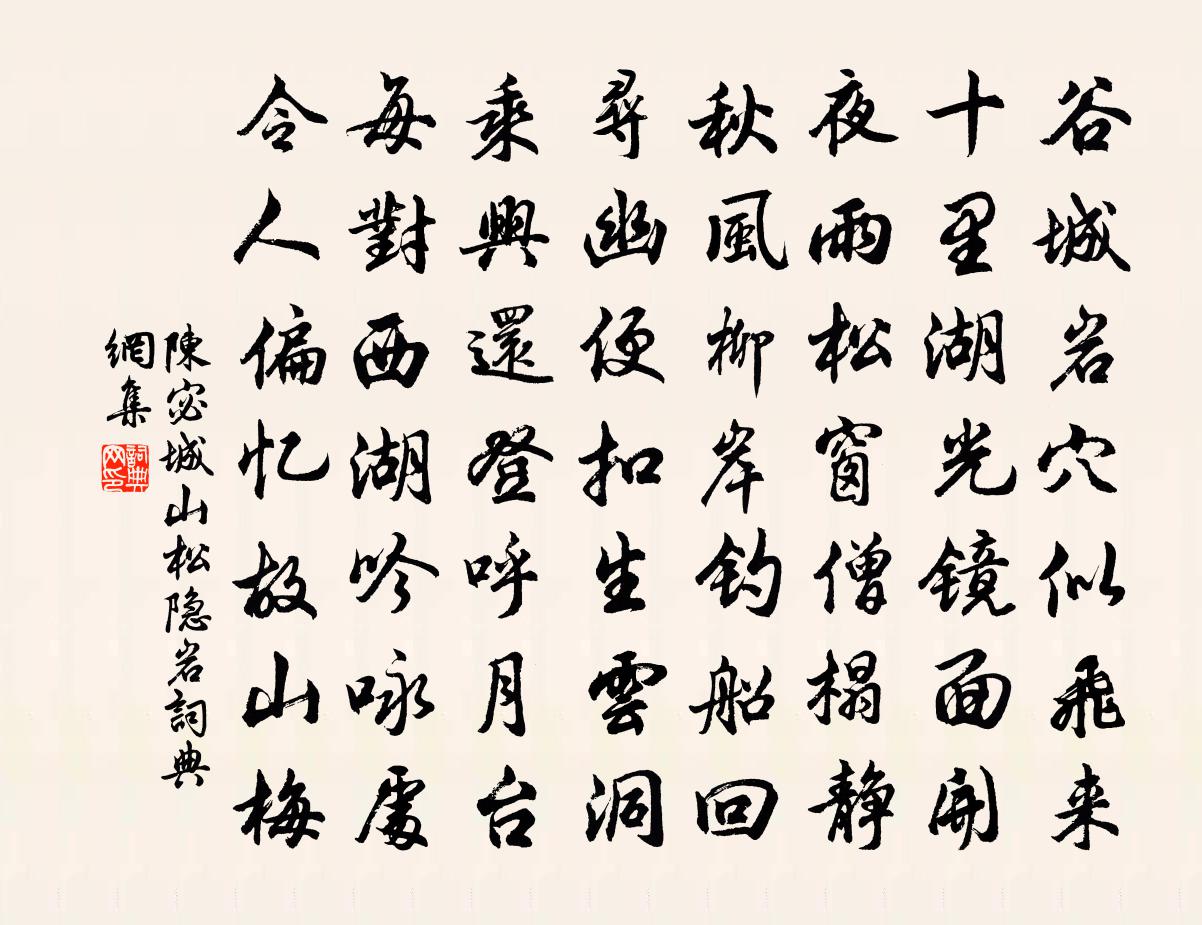 谷城岩穴似飛来
十里湖光镜面開
夜雨松窗僧榻静
秋風柳岸钓船回
尋幽便扣生雲洞
乘興還登呼月台
每對西湖吟咏處
令人偏忆故山梅
陳宓城山松隐岩詞典
網集
詞典
网印